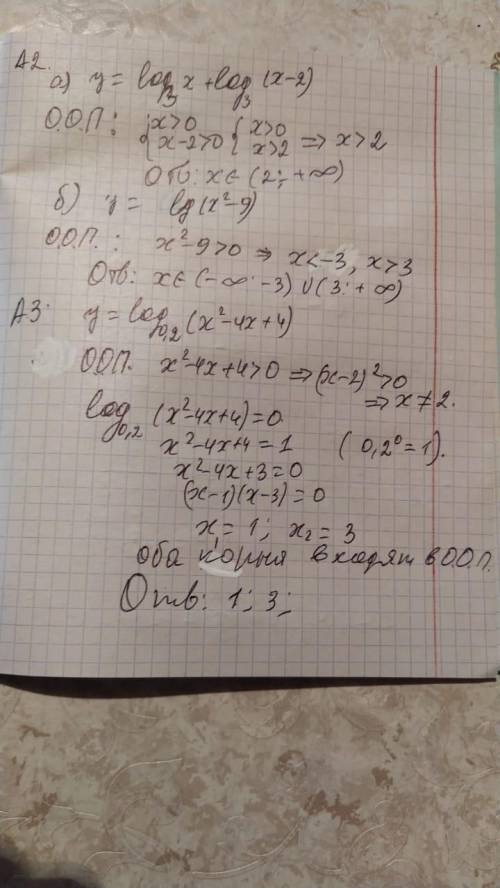 А2.
а) y = log₃ x + log₃ (x-2)
О.О.П: { x>0 { x>0
{ x-2>0 { x>2 ⇒ x>2
Отв: x∈ (2; +∞)
б) y = lg(x²-9)
О.О.П.: x²-9>0 ⇒ x<-3, x>3
Отв: x∈ (-∞; -3) ∪ (3; +∞)
А3. y = log₀,₂ (x²-4x+4)
О.О.П. x²-4x+4>0 ⇒ (x-2)²>0
⇒ x≠2.
log₀,₂ (x²-4x+4)=0
x²-4x+4=1 (0,2⁰=1).
x²-4x+3=0
(x-1)(x-3)=0
x₁=1; x₂=3
оба корня входят в О.О.П.
Отв: 1; 3;